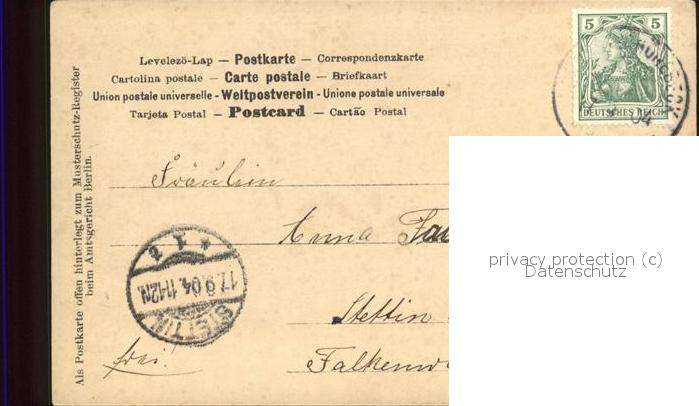 Levelezö-Lap — Postkarte — Correspondenzkarte
Cartolina postale — Carte postale — Briefkaart
Union postale universelle - Weltpostverein - Unione postale universale
Tarjeta Postal — Postcard — Cartão Postal
Als Postkarte offen hinterlegt zum Musterschutz-Register
beim Amtsgericht Berlin.
5 5
DEUTSCHES REICH
04
Fräulein
Anna
1 * 1
17.9.04.11-12N.
STETTIN
Stettin
frei!
privacy protection (c)
Datenschutz